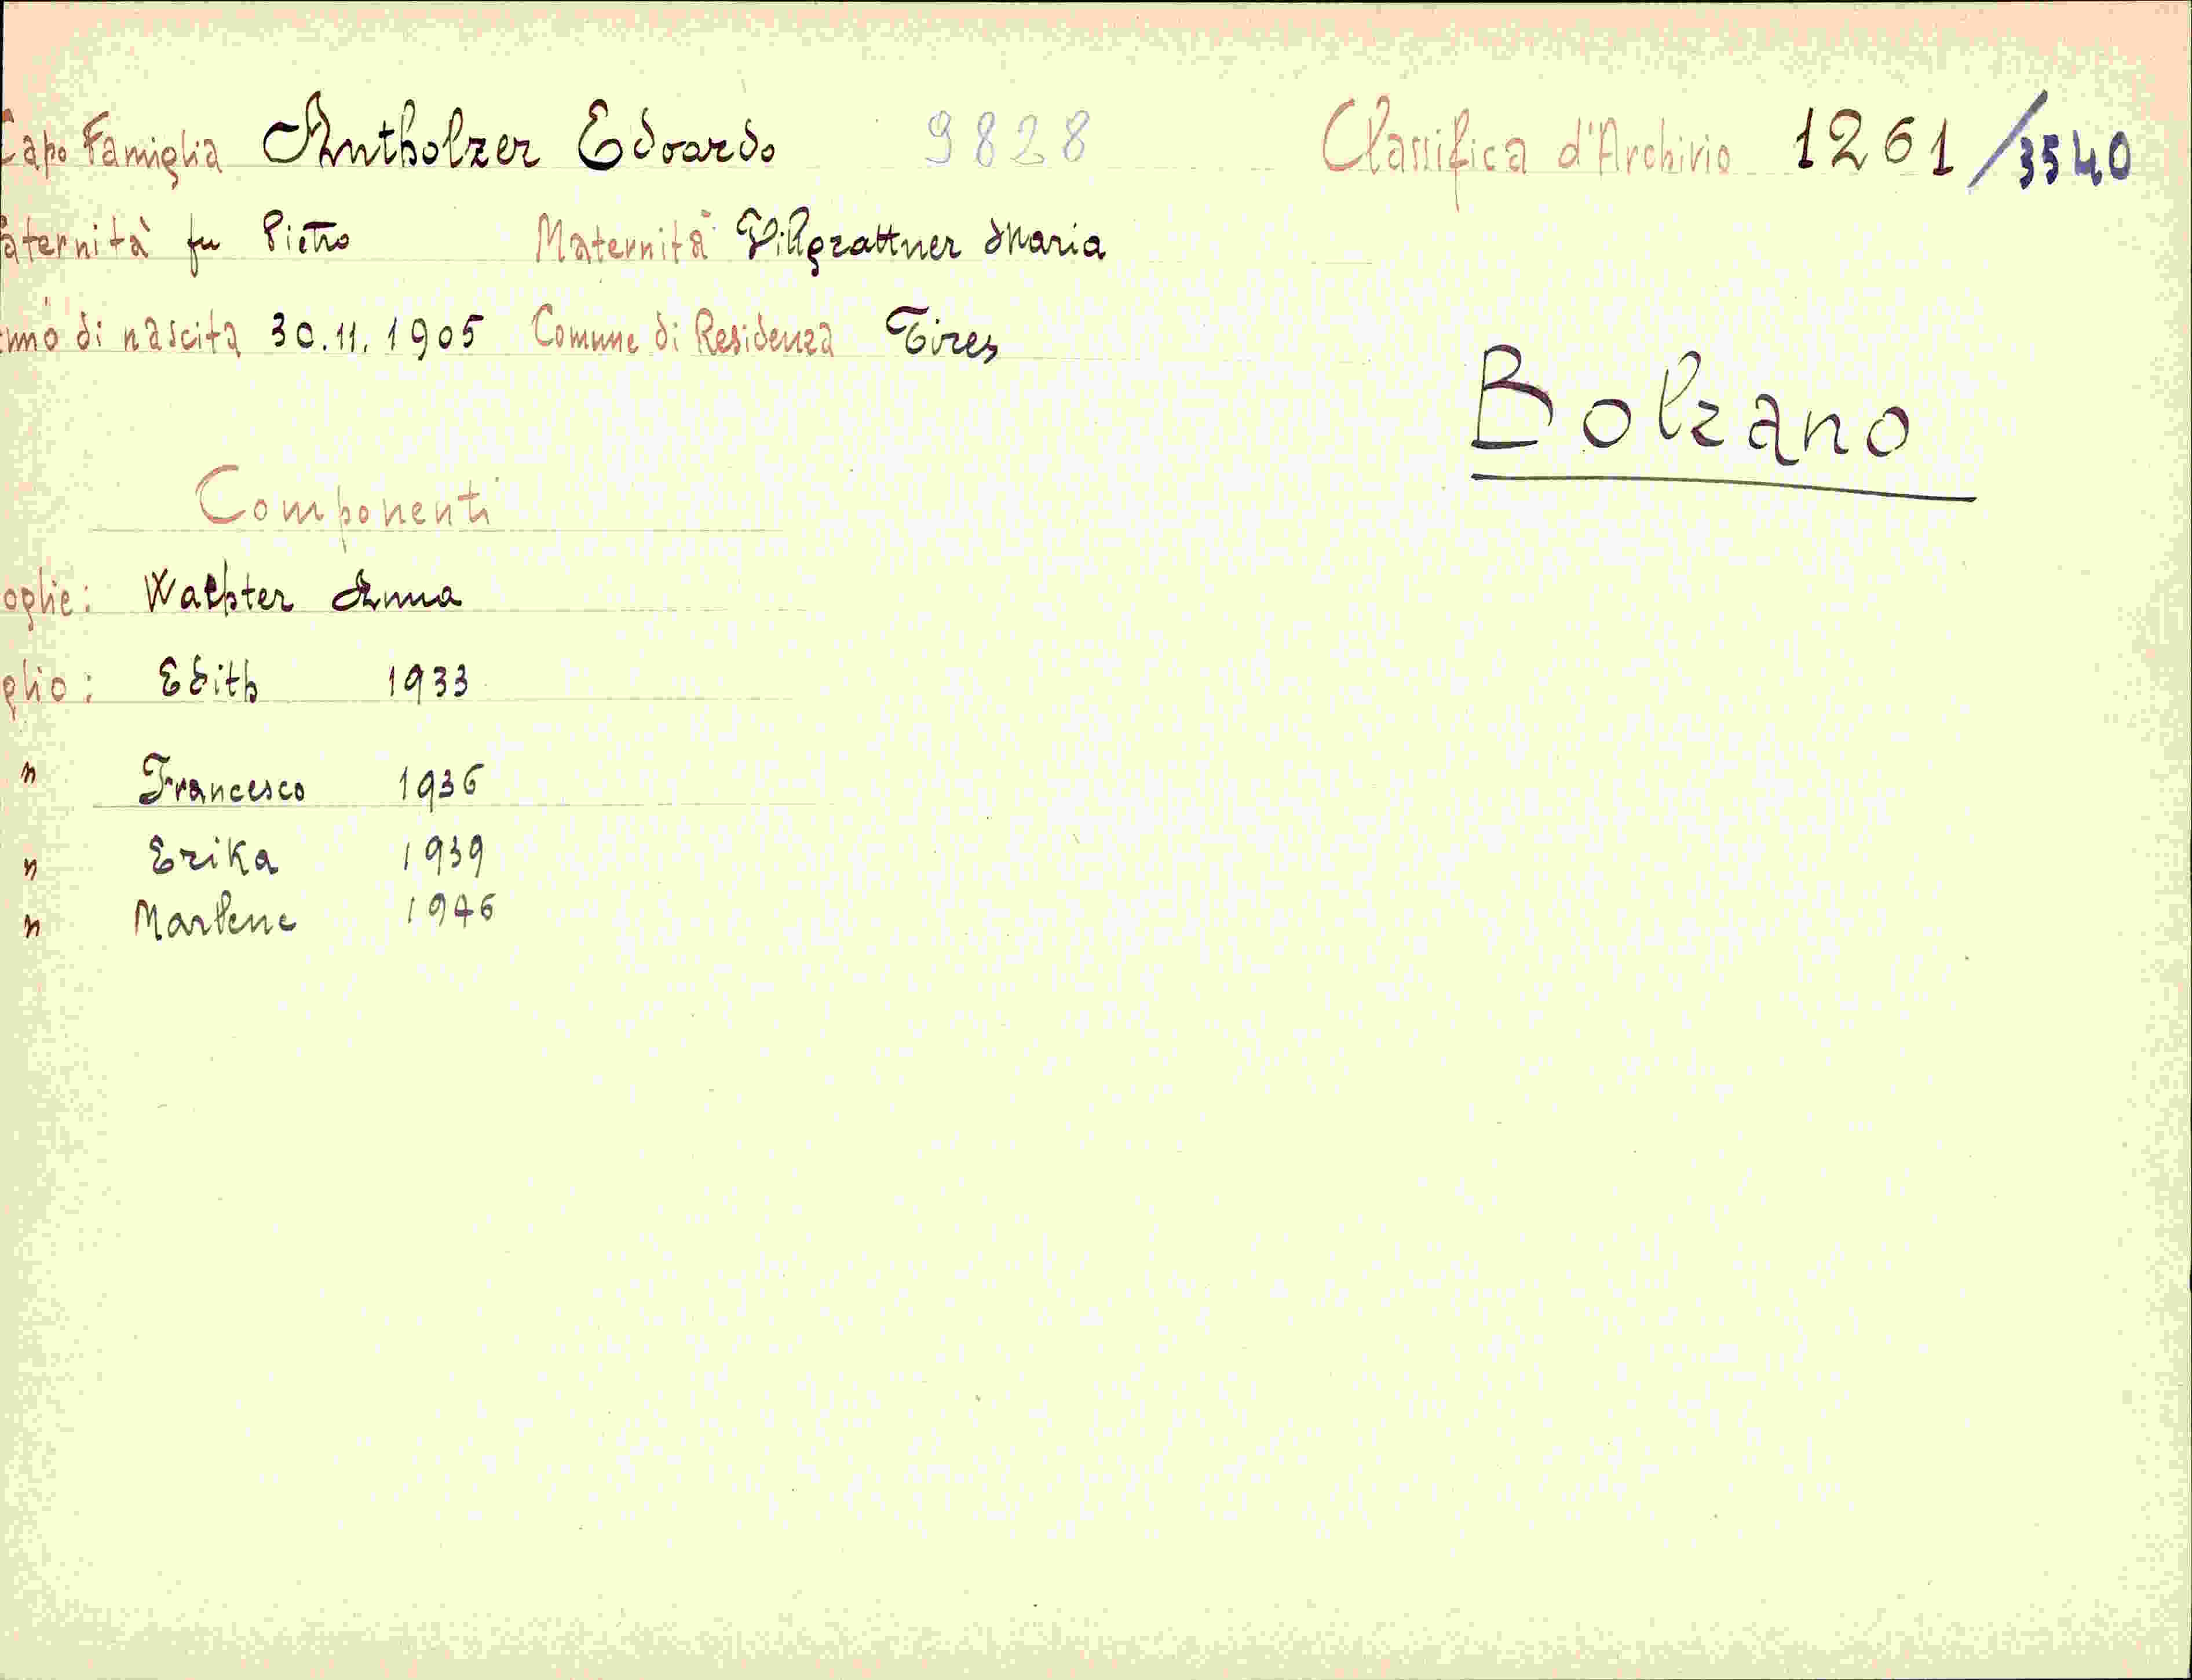 Capo Famiglia Antholzer Edoardo 9828 Classifica d'Archivio 1261/3540
aternità fu Pietro Maternità Villgrattner Maria
nno di nascita 30.11.1905 Comune di Residenza Tires
Bolzano
Componenti
oglie: Wachter Anna
glio: Edith 1933
" Francesco 1936
" Erika 1939
" Marlene 1946